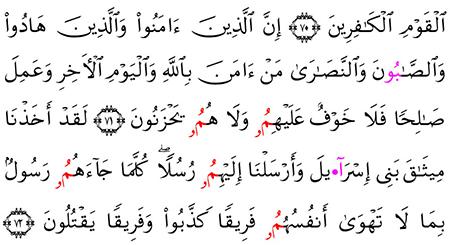 اَ۬لْقَوْمِ اِ۬لْكَٰفِرِينَ ﴿٧٠﴾ إِنَّ اَ۬لَّذِينَ ءَامَنُواْ وَالَّذِينَ هَادُواْ
وَالصَّٰبُونَ وَالنَّصَٰرَىٰ مَنْ ءَامَنَ بِاللَّهِ وَالْيَوْمِ اِ۬لْأَخِرِ وَعَمِلَ
صَٰلِحًا فَلَا خَوْفٌ عَلَيْهِمُۥ وَلَا هُمُۥ يَحْزَنُونَ ﴿٧١﴾ لَقَدْ أَخَذْنَا
مِيثَٰقَ بَنِي إِسْرَآءِيلَ وَأَرْسَلْنَا إِلَيْهِمُۥ رُسُلًاۖ كُلَّمَا جَآءَهُمُۥ رَسُولٌۢ
بِمَا لَا تَهْوَىٰ أَنفُسُهُمُۥ فَرِيقًا كَذَّبُواْ وَفَرِيقًا يَقْتُلُونَ ﴿٧٢﴾